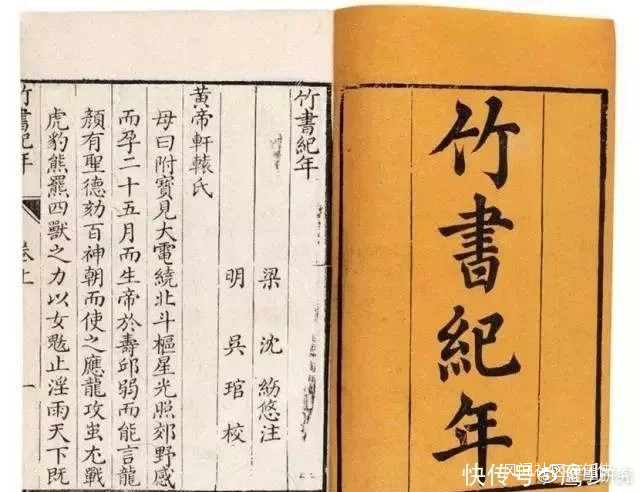 竹書紀年
竹書紀年
梁 沈約悠注
明 吳琯校
黃帝軒轅氏
母曰附寶見大電繞北斗樞星光照郊野感
而孕二十五月而生帝於壽邱弱而能言龍
顏有聖德劾百神朝而使之應龍攻蚩尤戰
虎豹熊羆四獸之力以女魃止淫雨天下既
竹書紀年 卷上 一
快传号